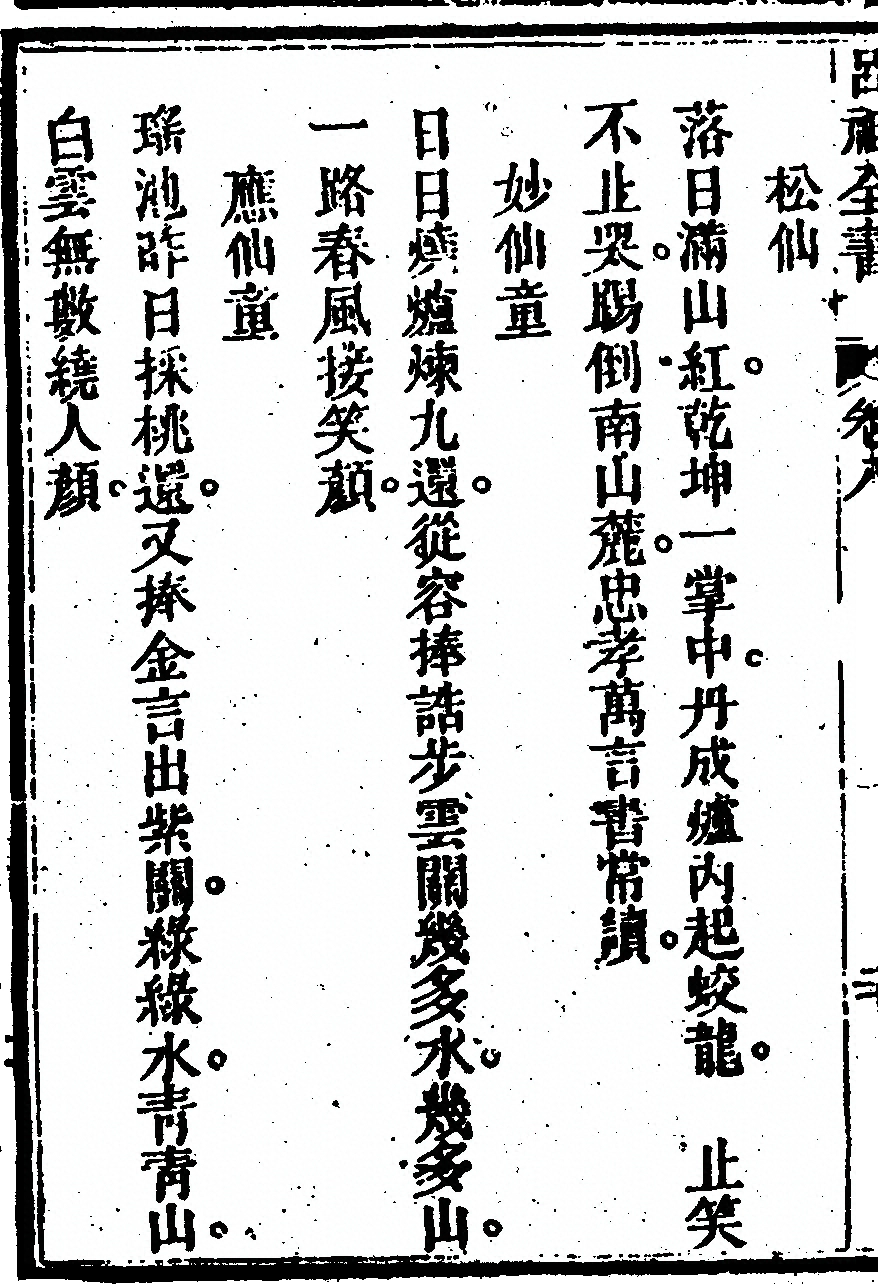 呂祖全書 卷八
松仙
落日滿山紅。乾坤一掌中。丹成爐內起蛟龍。 止笑
不止哭。踢倒南山麓。忠孝萬言書常讀。
妙仙童
日日燒爐煉九還。從容捧誥步雲關幾多水。幾多山。
一路春風接笑顏。
應仙童
瑤池昨日採桃還。又捧金言出紫關。綠綠水。靑靑山。
白雲無數繞人顏。